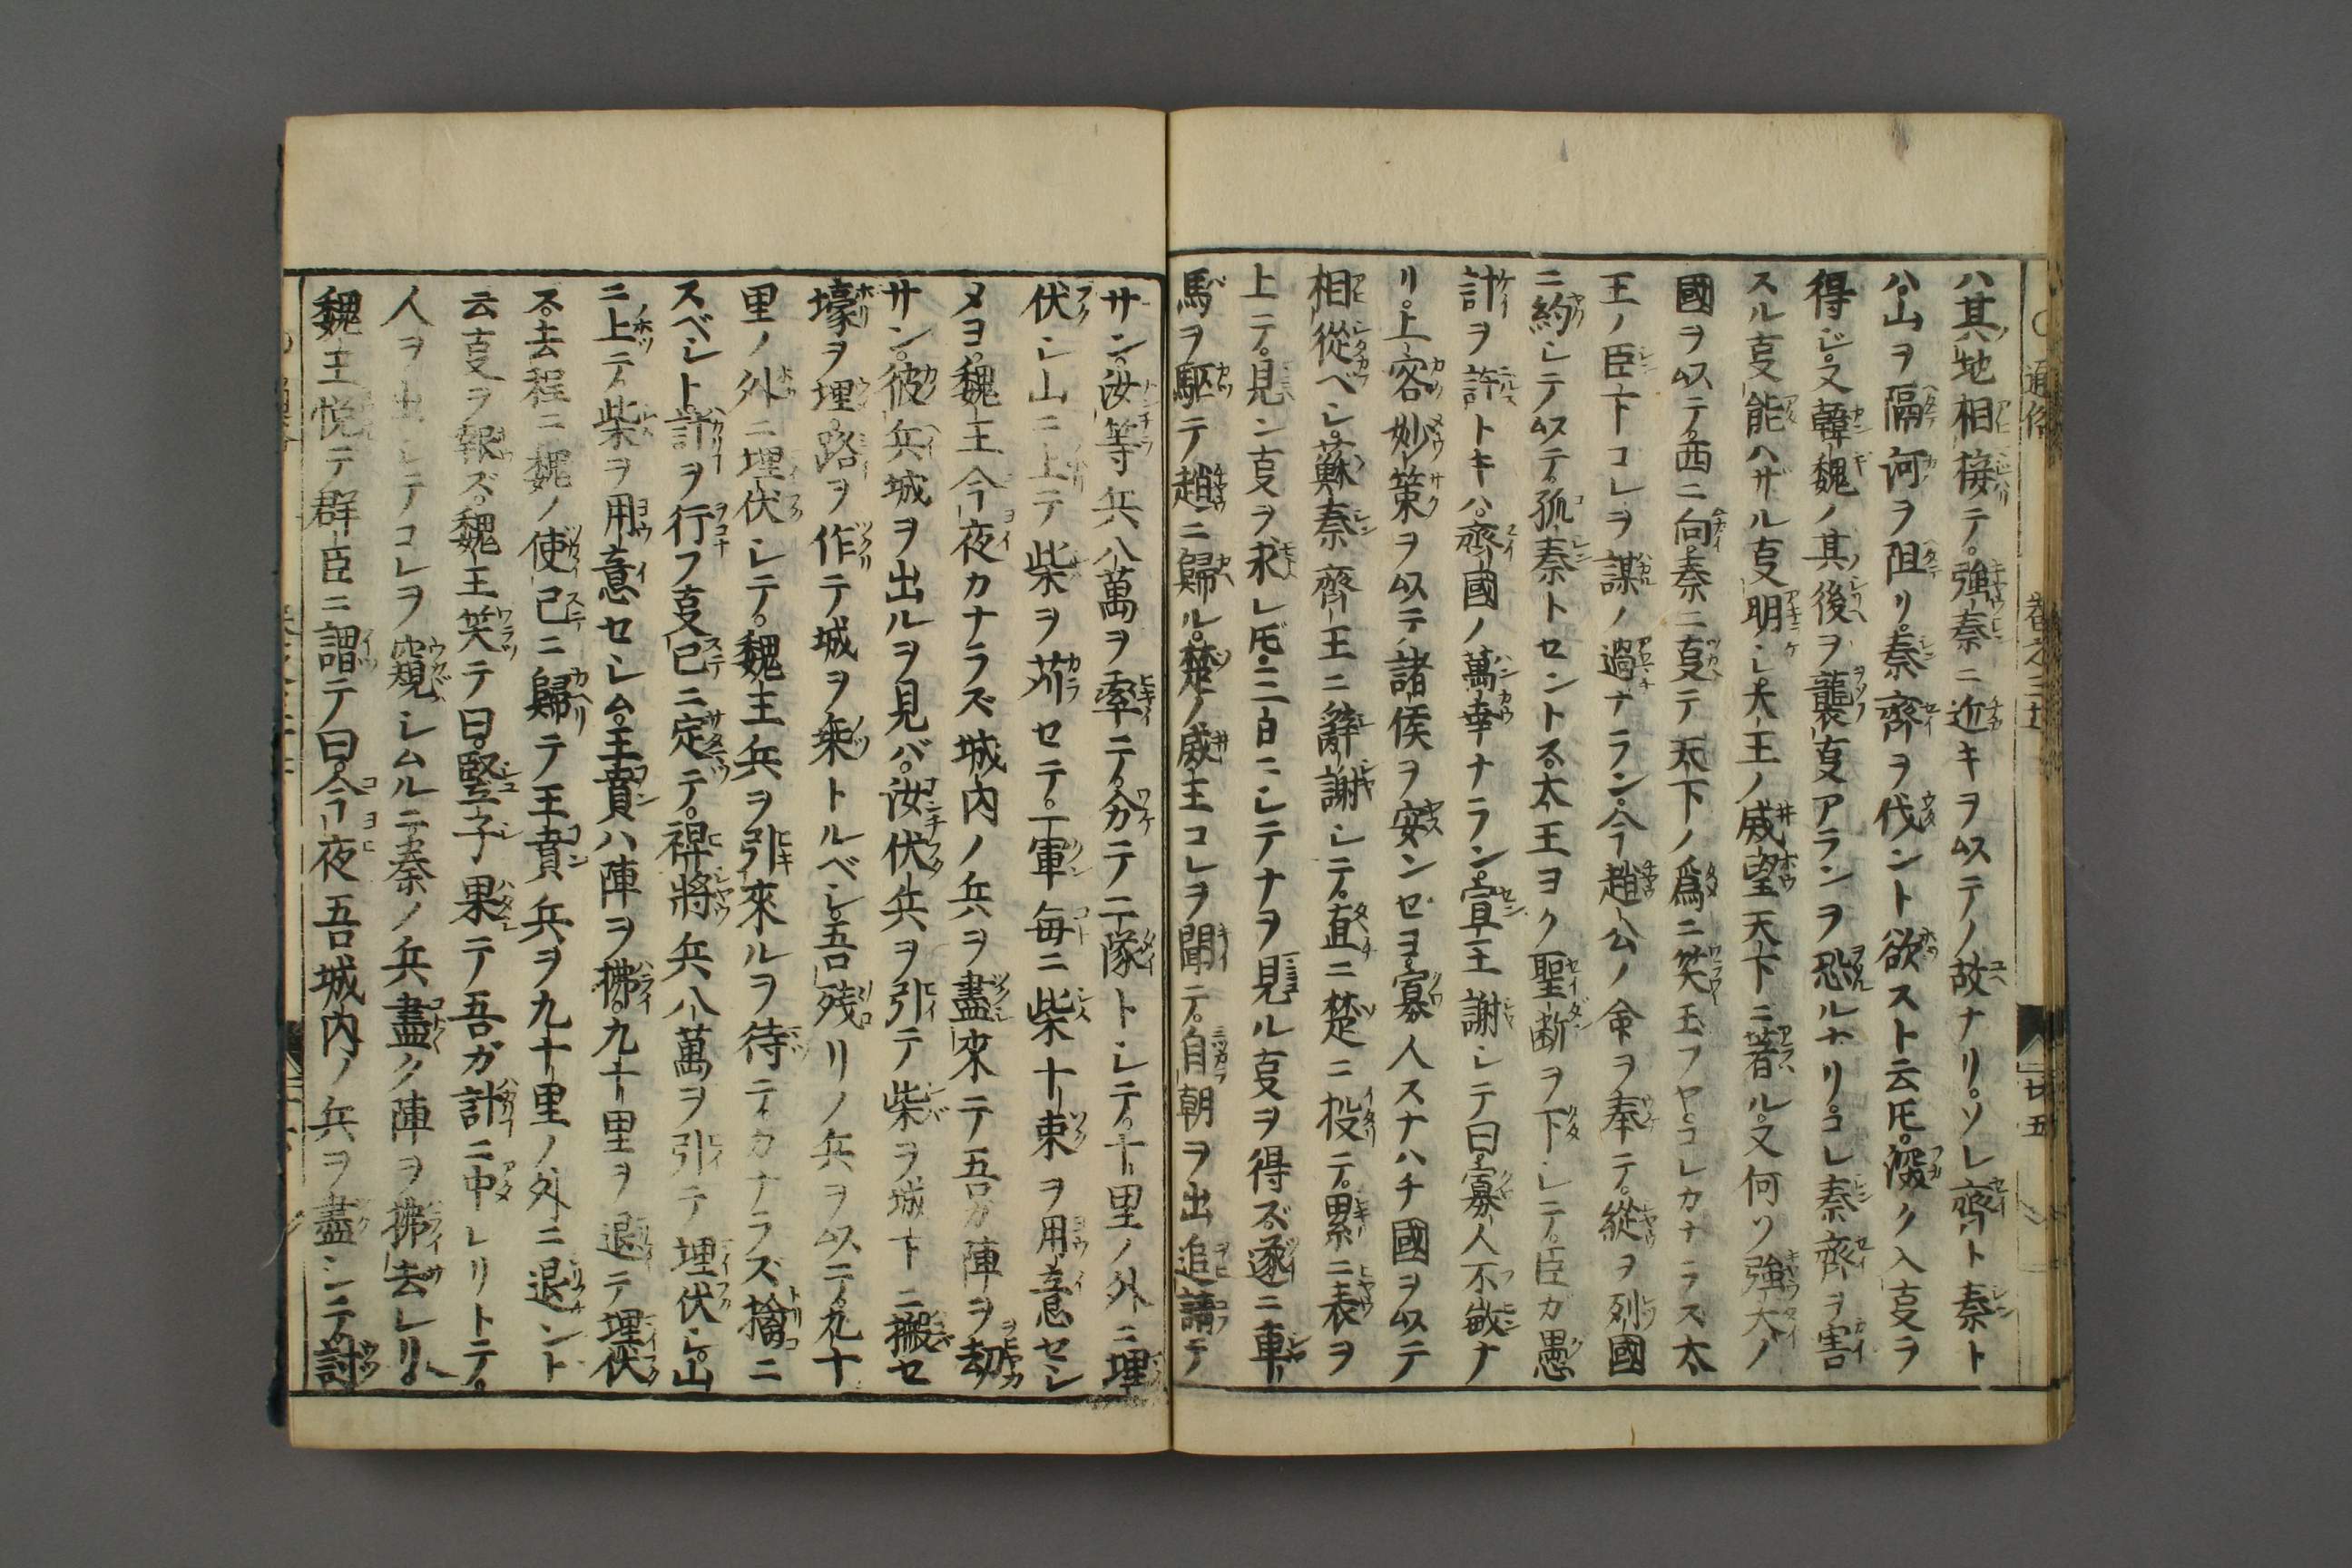 ハ其地相接テ。強秦ニ近キヲ以テノ故ナリ。ソレ齊ト秦ト
ハ山ヲ隔河ヲ阻リ。秦齊ヲ伐ント欲スト云𪜈。深ク入㕝ヲ
得ジ。又韓魏ノ其後ヲ襲㕝アランヲ恐ルナリ。コレ秦齊ヲ害
スル㕝能ハザル㕝明シ。大王ノ威望天下ニ著ル。又何ソ強大ノ
國ヲ以テ。西ニ向。秦ニ㕝テ天下ノ爲ニ笑玉フヤ。コレカナラズ太
王ノ臣下コレヲ謀ノ過ナラン。今趙公ノ命ヲ奉テ。從ヲ列國
ニ約シテ以テ。孤秦トセントス。太王ヨク聖断ヲ下シテ。臣ガ愚
計ヲ許トキハ。齊國ノ萬幸ナラン。宣王謝シテ曰。寡人不敏ナ
リ。上客妙策ヲ以テ。諸侯ヲ安ンゼヨ。寡人スナハチ國ヲ以テ
相從ベシ。蘇秦齊王ニ辭謝シテ。直ニ楚ニ投テ。累ニ表ヲ
上テ。見ン㕝ヲ求レ𪜈。三日ニシテナヲ見ル㕝ヲ得ズ。遂ニ車
馬ヲ駆テ趙ニ歸ル。楚ノ威王コレヲ聞テ。自朝ヲ出追請テ
通俗
卷之三十
廿五
サン。汝等兵八萬ヲ率テ。分テ二隊トシテ。十里ノ外ニ埋
伏シ山ニ上テ柴ヲ苅セテ。一軍毎ニ柴十束ヲ用意セシ
メヨ。魏王今夜カナラズ城内ノ兵ヲ盡來テ吾ガ陣ヲ劫
サン。彼兵城ヲ出ルヲ見バ。汝伏兵ヲ引テ柴ヲ城下ニ搬セ
壕ヲ埋。路ヲ作テ城ヲ乗トルベシ。吾残リノ兵ヲ以テ。九十
里ノ外ニ埋伏シテ。魏王兵ヲ引來ルヲ待テ。カナラズ擒ニ
スベシト計ヲ行フ㕝已ニ定テ。裨將兵八萬ヲ引テ埋伏シ。山
ニ上テ柴ヲ用意セシム。王賁ハ陣ヲ拂。九十里ヲ退テ埋伏
ス。去程ニ魏ノ使已ニ歸テ王賁兵ヲ九十里ノ外ニ退ント
云㕝ヲ報ズ。魏王笑テ曰。竪子果テ吾ガ計ニ中レリトテ。
人ヲ出シテコレヲ窺シムルニ秦ノ兵盡ク陣ヲ拂去レリ。
魏王悦テ群臣ニ謂テ曰。今夜吾城内ノ兵ヲ盡シテ。討